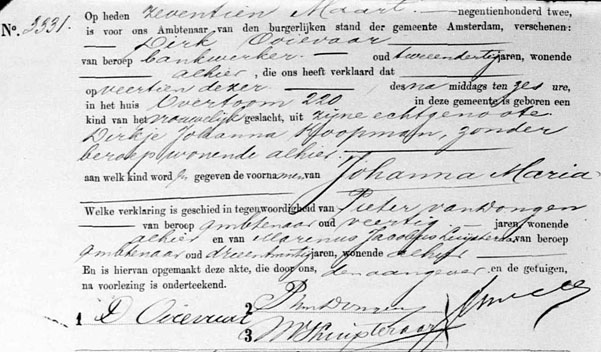 No. 2331.
Op heden zeventien Maart negentienhonderd twee,
is voor ons Ambtenaar van den burgerlijken stand der gemeente Amsterdam, verschenen:
Dirk Ooievaar
van beroep bankwerker oud tweeendertig jaren, wonende
alhier, die ons heeft verklaard dat
op veertien dezer des na middags ten zes ure,
in het huis Overtoom 220 in deze gemeente is geboren een
kind van het vrouwelijk geslacht, uit zijne echtgenoote
Dirkje Johanna Koopman, zonder
beroep, wonende alhier.
aan welk kind word gegeven de voornamen van Johanna Maria
Welke verklaring is geschied in tegenwoordigheid van Pieter van Dongen
van beroep ambtenaar oud veertig jaren, wonende
alhier en van Marenus Jacobus van beroep
ambtenaar oud drieentwintig jaren, wonende alhier
En is hiervan opgemaakt deze akte, die door ons, den aangever en de getuigen,
na voorlezing is onderteekend.
1 D Ooievaar 2 P van Dongen
3